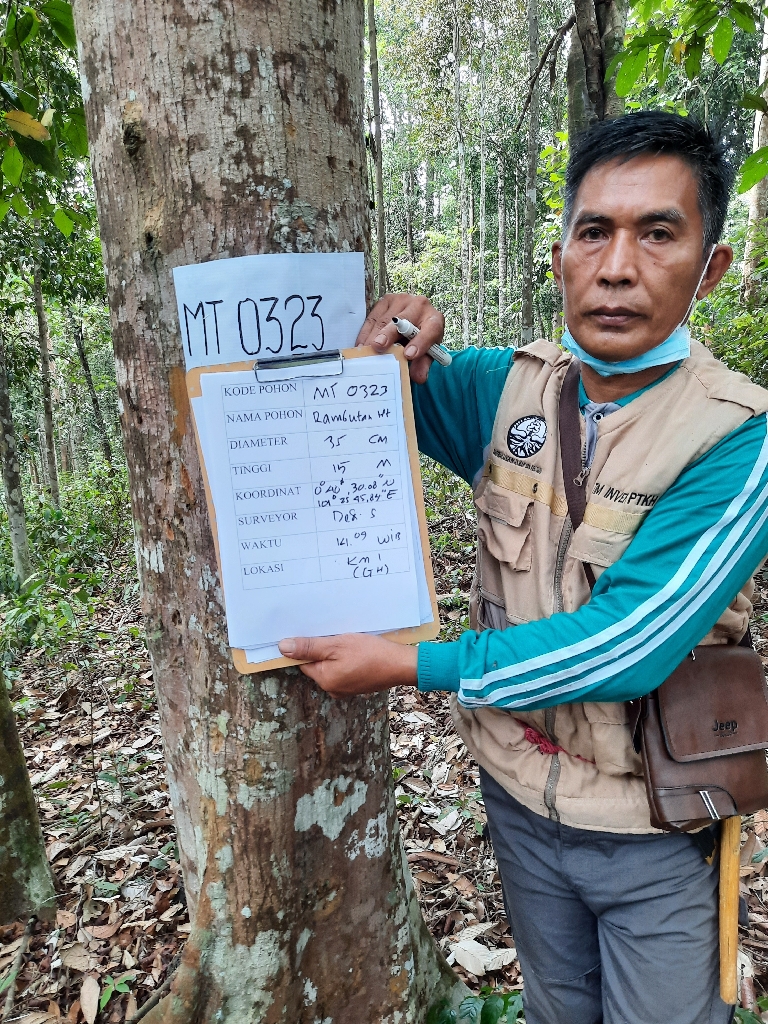 MT 0323
KODE POHON MT 0323
NAMA POHON Rambutan Ht
DIAMETER 35 CM
TINGGI 15 M
KOORDINAT 0° 40', 30.00" N
101° 25' 45,84" E
SURVEYOR
WAKTU 14.09 WIB
LOKASI KM 1
(GH)
Jeep